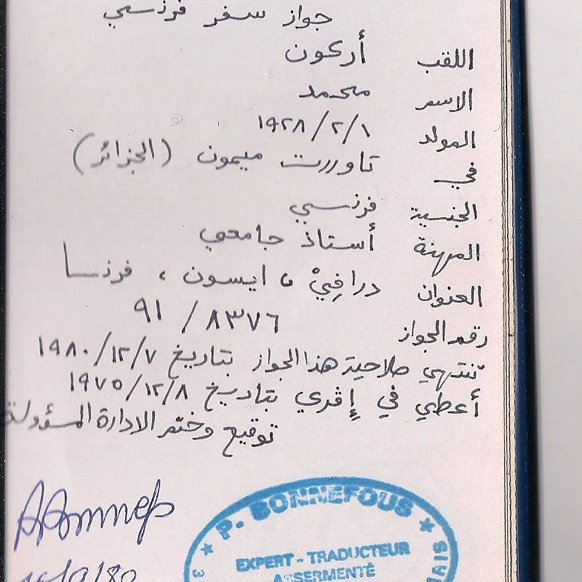 جواز سفر فرنسي
اللقب أركون
الاسم محمد
المولد ١٩٢٨/٢/١
في تاوريرت ميمون (الجزائر)
الجنسية فرنسي
المهنة أستاذ جامعي
العنوان درافيْ ، ايسون ، فرنسا
رقم الجواز ٩١ / ٨٣٧٦
تنتهي صلاحية هذا الجواز بتاريخ ١٩٨٠/١٢/٧
أعطي في إڤري بتاريخ ١٩٧٥/١٢/٨
توقيع وختم الادارة المسؤولة
★ P. BONNEFOUS ★
EXPERT - TRADUCTEUR
ASSERMENTÉ